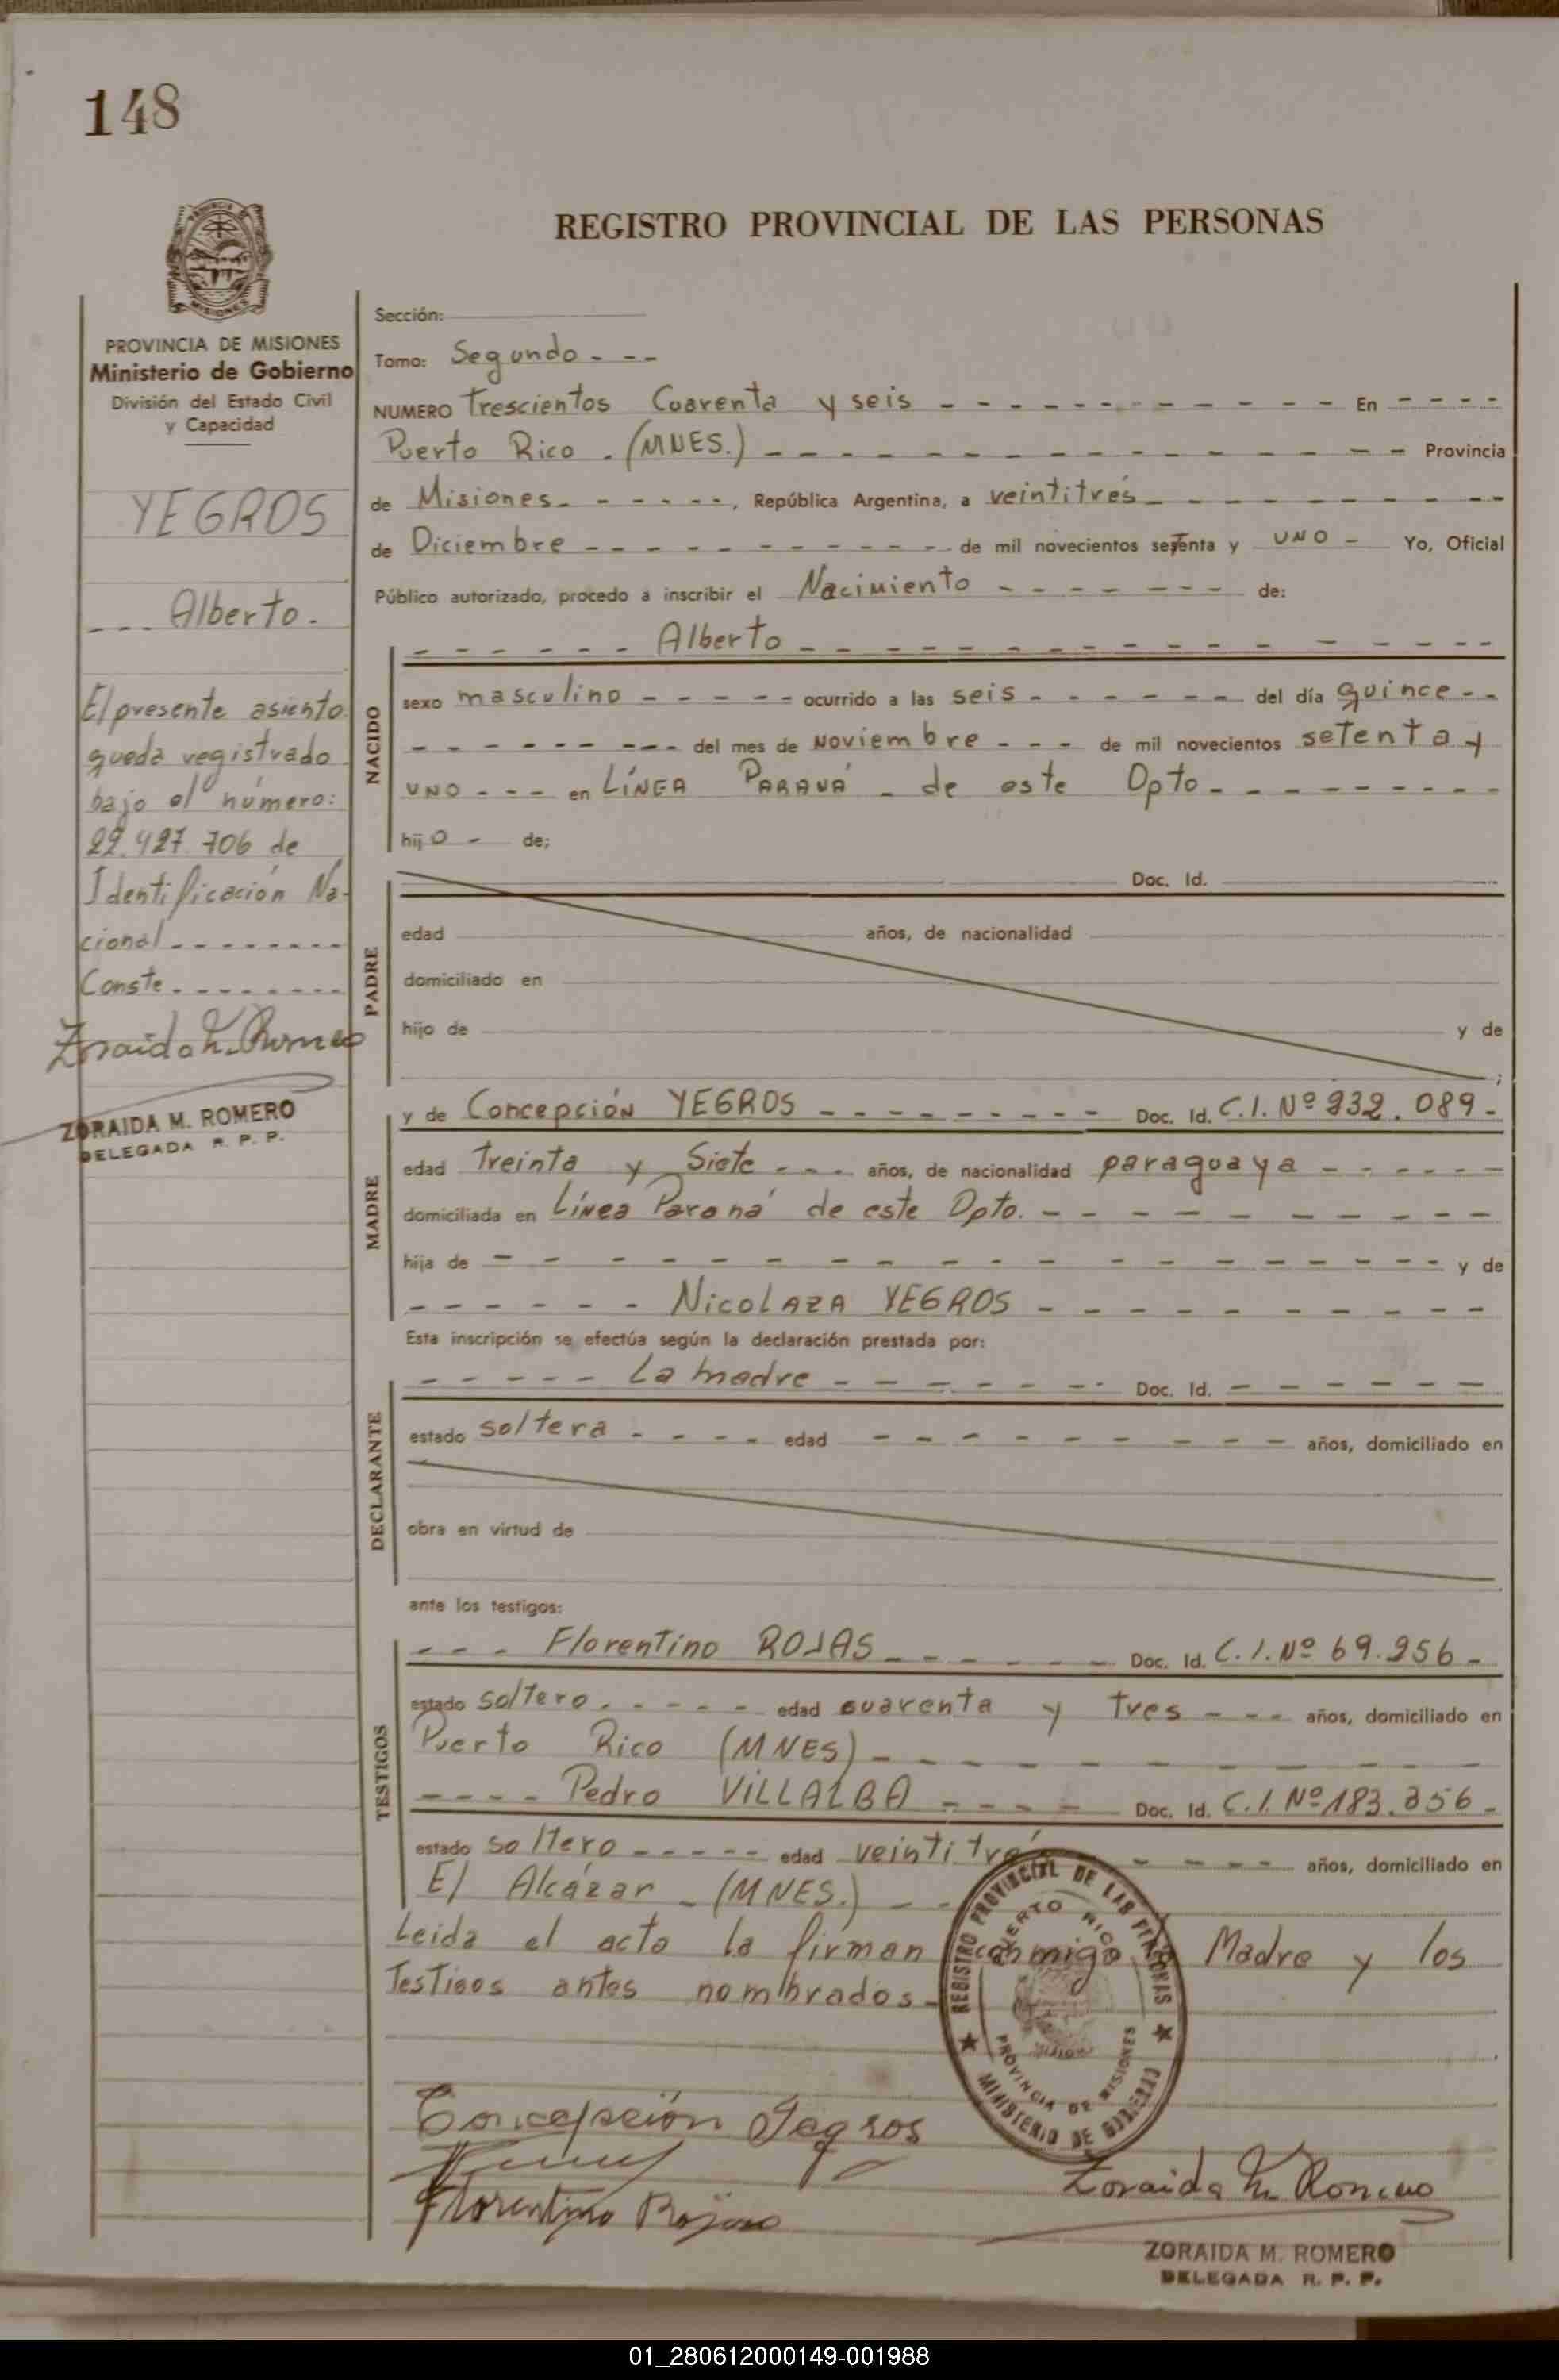 148
REGISTRO PROVINCIAL DE LAS PERSONAS
PROVINCIA DE MISIONES
Ministerio de Gobierno
División del Estado Civil
y Capacidad
YEGROS
--- Alberto.
El presente asiento
queda registrado
bajo el número:
22.427.706 de
Identificación Na-
cional - - - - - - - -
Conste. - - - - - - - -
Zoraida M. Romero
ZORAIDA M. ROMERO
DELEGADA R. P. P.
Sección:
Tomo: Segundo - - -
NUMERO Trescientos Cuarenta y seis - - - - - - - - - - - - En - - - -
Puerto Rico . (MNES.) - - - - - - - - - - - - - - - Provincia
de Misiones - - - - - -, República Argentina, a veintitrés - - - - - - - - -
de Diciembre - - - - - - - - - - - de mil novecientos setenta y UNO - Yo, Oficial
Público autorizado, procedo a inscribir el Nacimiento - - - - - - - de:
NACIDO
- - - - - - Alberto - - - - - - - - - - - - - -
sexo masculino - - - - - - ocurrido a las seis - - - - - - - del día quince - -
- - - - - - - - - - del mes de Noviembre - - - de mil novecientos setenta y
UNO - - - en LÍNEA PARANÁ - de este Opto - - - - - - - - -
hijo - de;
PADRE
Doc. Id.
edad años, de nacionalidad
domiciliado en
hijo de y de
;
MADRE
y de Concepción YEGROS - - - - - - - - - Doc. Id. C.I. Nº 232.089 -
edad Treinta y Siete - - - años, de nacionalidad paraguaya - - - - - -
domiciliada en Línea Paraná de este Dpto. - - - - - - - - - -
hija de - - - - - - - - - - - - - - - - - - y de
- - - - - - Nicolaza YEGROS - - - - - - - - - -
Esta inscripción se efectúa según la declaración prestada por:
DECLARANTE
- - - - - La madre - - - - - - - Doc. Id. - - - - - -
estado soltera - - - - edad - - - - - - - - - - años, domiciliado en
obra en virtud de
ante los testigos:
TESTIGOS
- - - Florentino ROJAS - - - - - - Doc. Id. C.I. Nº 69.256 -
estado soltero - - - - - edad cuarenta y Tres - - - años, domiciliado en
Puerto Rico (MNES) - - - - - - - - - - - -
- - - - Pedro VILLALBA - - - - Doc. Id. C.I. Nº 183.356 -
estado soltero - - - - - edad veintitré - - - - años, domiciliado en
El Alcázar - (MNES.) - -
Leida el acta la firman conmigo Madre y los
Testigos antes nombrados -
REGISTRO PROVINCIAL DE LAS PERSONAS
PUERTO RICO
PROVINCIA DE MISIONES
MINISTERIO DE GOBIERNO
Concepción Yegros
Florentino Rojas
Zoraida M. Romero
ZORAIDA M. ROMERO
DELEGADA R. P. P.
01_280612000149-001988